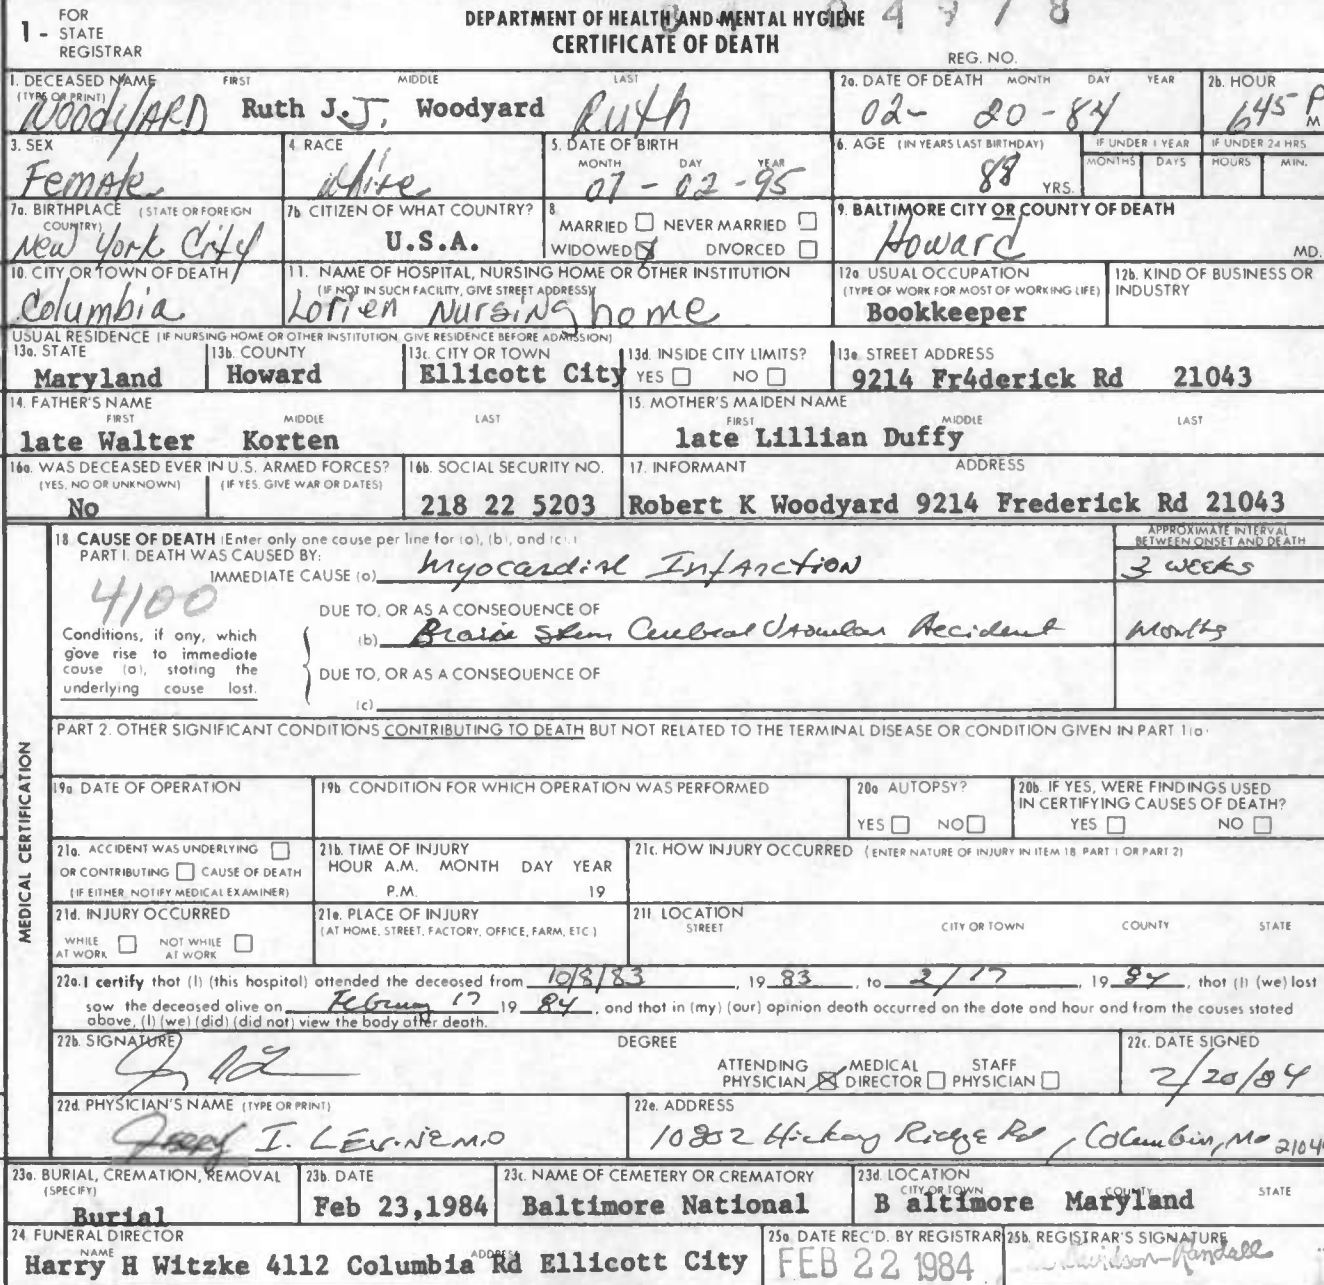 FOR
1 - STATE
REGISTRAR
DEPARTMENT OF HEALTH AND MENTAL HYGIENE
CERTIFICATE OF DEATH
REG. NO.
84 04978
1. DECEASED NAME FIRST MIDDLE LAST
(TYPE OR PRINT)
WOODYARD Ruth J. J. Woodyard Ruth
2a. DATE OF DEATH MONTH DAY YEAR
02- 20-84
2b. HOUR
645 P M
3. SEX
Female
4. RACE
White
5. DATE OF BIRTH
MONTH DAY YEAR
07-02-95
6. AGE (IN YEARS LAST BIRTHDAY)
88 YRS.
IF UNDER 1 YEAR
MONTHS DAYS
IF UNDER 24 HRS
HOURS MIN.
7a. BIRTHPLACE (STATE OR FOREIGN
COUNTRY)
New York City
7b CITIZEN OF WHAT COUNTRY?
U.S.A.
8
MARRIED NEVER MARRIED
WIDOWED DIVORCED
9. BALTIMORE CITY OR COUNTY OF DEATH
Howard MD.
10. CITY OR TOWN OF DEATH
Columbia
11. NAME OF HOSPITAL, NURSING HOME OR OTHER INSTITUTION
(IF NOT IN SUCH FACILITY, GIVE STREET ADDRESS)
Lorien Nursing home
12a USUAL OCCUPATION
(TYPE OF WORK FOR MOST OF WORKING LIFE)
Bookkeeper
12b. KIND OF BUSINESS OR
INDUSTRY
USUAL RESIDENCE (IF NURSING HOME OR OTHER INSTITUTION GIVE RESIDENCE BEFORE ADMISSION)
13a. STATE
Maryland
13b. COUNTY
Howard
13c. CITY OR TOWN
Ellicott City
13d. INSIDE CITY LIMITS?
YES NO
13e STREET ADDRESS
9214 Fr4derick Rd 21043
14. FATHER'S NAME
FIRST MIDDLE LAST
late Walter Korten
15. MOTHER'S MAIDEN NAME
FIRST MIDDLE LAST
late Lillian Duffy
16a. WAS DECEASED EVER IN U.S. ARMED FORCES?
(YES, NO OR UNKNOWN) (IF YES, GIVE WAR OR DATES)
No
16b. SOCIAL SECURITY NO.
218 22 5203
17. INFORMANT ADDRESS
Robert K Woodyard 9214 Frederick Rd 21043
MEDICAL CERTIFICATION
18 CAUSE OF DEATH (Enter only one cause per line for (a), (b), and (c).)
APPROXIMATE INTERVAL
BETWEEN ONSET AND DEATH
PART I. DEATH WAS CAUSED BY:
IMMEDIATE CAUSE (a) Myocardial Infarction 3 weeks
4100
DUE TO, OR AS A CONSEQUENCE OF
(b) Brain Stem Cerebral Vascular Accident Months
Conditions, if any, which
gave rise to immediate
cause (a), stating the
underlying cause last.
DUE TO, OR AS A CONSEQUENCE OF
(c)
PART 2. OTHER SIGNIFICANT CONDITIONS CONTRIBUTING TO DEATH BUT NOT RELATED TO THE TERMINAL DISEASE OR CONDITION GIVEN IN PART 1(a)
19a DATE OF OPERATION
19b CONDITION FOR WHICH OPERATION WAS PERFORMED
20a AUTOPSY?
YES NO
20b. IF YES, WERE FINDINGS USED
IN CERTIFYING CAUSES OF DEATH?
YES NO
21a. ACCIDENT WAS UNDERLYING
OR CONTRIBUTING CAUSE OF DEATH
(IF EITHER, NOTIFY MEDICAL EXAMINER)
21b. TIME OF INJURY
HOUR A.M. MONTH DAY YEAR
P.M. 19
21c. HOW INJURY OCCURRED (ENTER NATURE OF INJURY IN ITEM 18 PART 1 OR PART 2)
21d. INJURY OCCURRED
WHILE AT WORK NOT WHILE AT WORK
21e. PLACE OF INJURY
(AT HOME, STREET, FACTORY, OFFICE, FARM, ETC.)
21f. LOCATION
STREET CITY OR TOWN COUNTY STATE
22a. I certify that (I) (this hospital) attended the deceased from 10/8/83, 19 83, to 2/17, 19 84, that (I) (we) last
saw the deceased alive on February 17 19 84, and that in (my) (our) opinion death occurred on the date and hour and from the causes stated
above, (I) (we) (did) (did not) view the body after death.
22b. SIGNATURE
DEGREE
ATTENDING PHYSICIAN MEDICAL DIRECTOR STAFF PHYSICIAN
22c. DATE SIGNED
2/20/84
22d. PHYSICIAN'S NAME (TYPE OR PRINT)
Jerry I. LEVINE M.D
22e. ADDRESS
10802 Hickory Ridge Rd, Columbia, MD
23a. BURIAL, CREMATION, REMOVAL
(SPECIFY)
Burial
23b. DATE
Feb 23,1984
23c. NAME OF CEMETERY OR CREMATORY
Baltimore National
23d. LOCATION
CITY OR TOWN COUNTY STATE
B altimore Maryland
24 FUNERAL DIRECTOR
NAME ADDRESS
Harry H Witzke 4112 Columbia Rd Ellicott City
25a. DATE REC'D. BY REGISTRAR
FEB 22 1984
25b. REGISTRAR'S SIGNATURE
Davidson-Randall